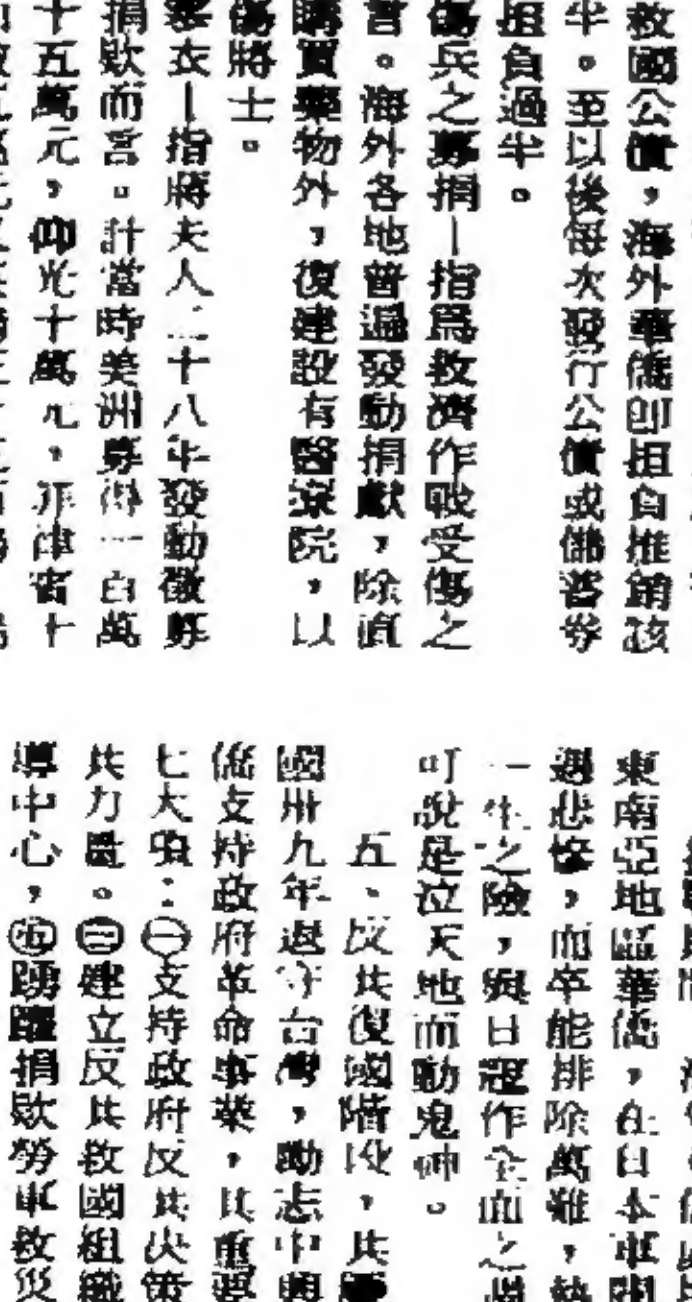 救國公債，海外華僑卽担負推銷該
半。至以後每次發行公債或儲蓄券
担負過半。
傷兵之募捐—指爲救濟作戰受傷之
言。海外各地普遍發動捐獻，除直
購買藥物外，復建設有醫療院，以
傷將士。
寒衣—指蔣夫人二十八年發動徵募
捐欵而言。計當時美洲募得一百萬
十五萬元，仰光十萬元，菲律賓十
東南亞地區華僑，在日本軍閥
遇悲慘，而卒能排除萬難，
一生之險，與日寇作全面之
可說是泣天地而動鬼神。
五、反共復國階段，共
國卅九年退守台灣，勵志中興
僑支持政府革命事業，其重要
七大項：㊀支持政府反共決策
共力量。㊂建立反共救國組織
導中心，㊄踴躍捐欵勞軍救災